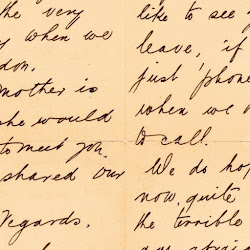 the very
when we
don.
mother is
she would
to meet you.
shared our
Regards.
like to see
leave, if
just 'phone
when we
to call.
We do hop
now quite
the terrible